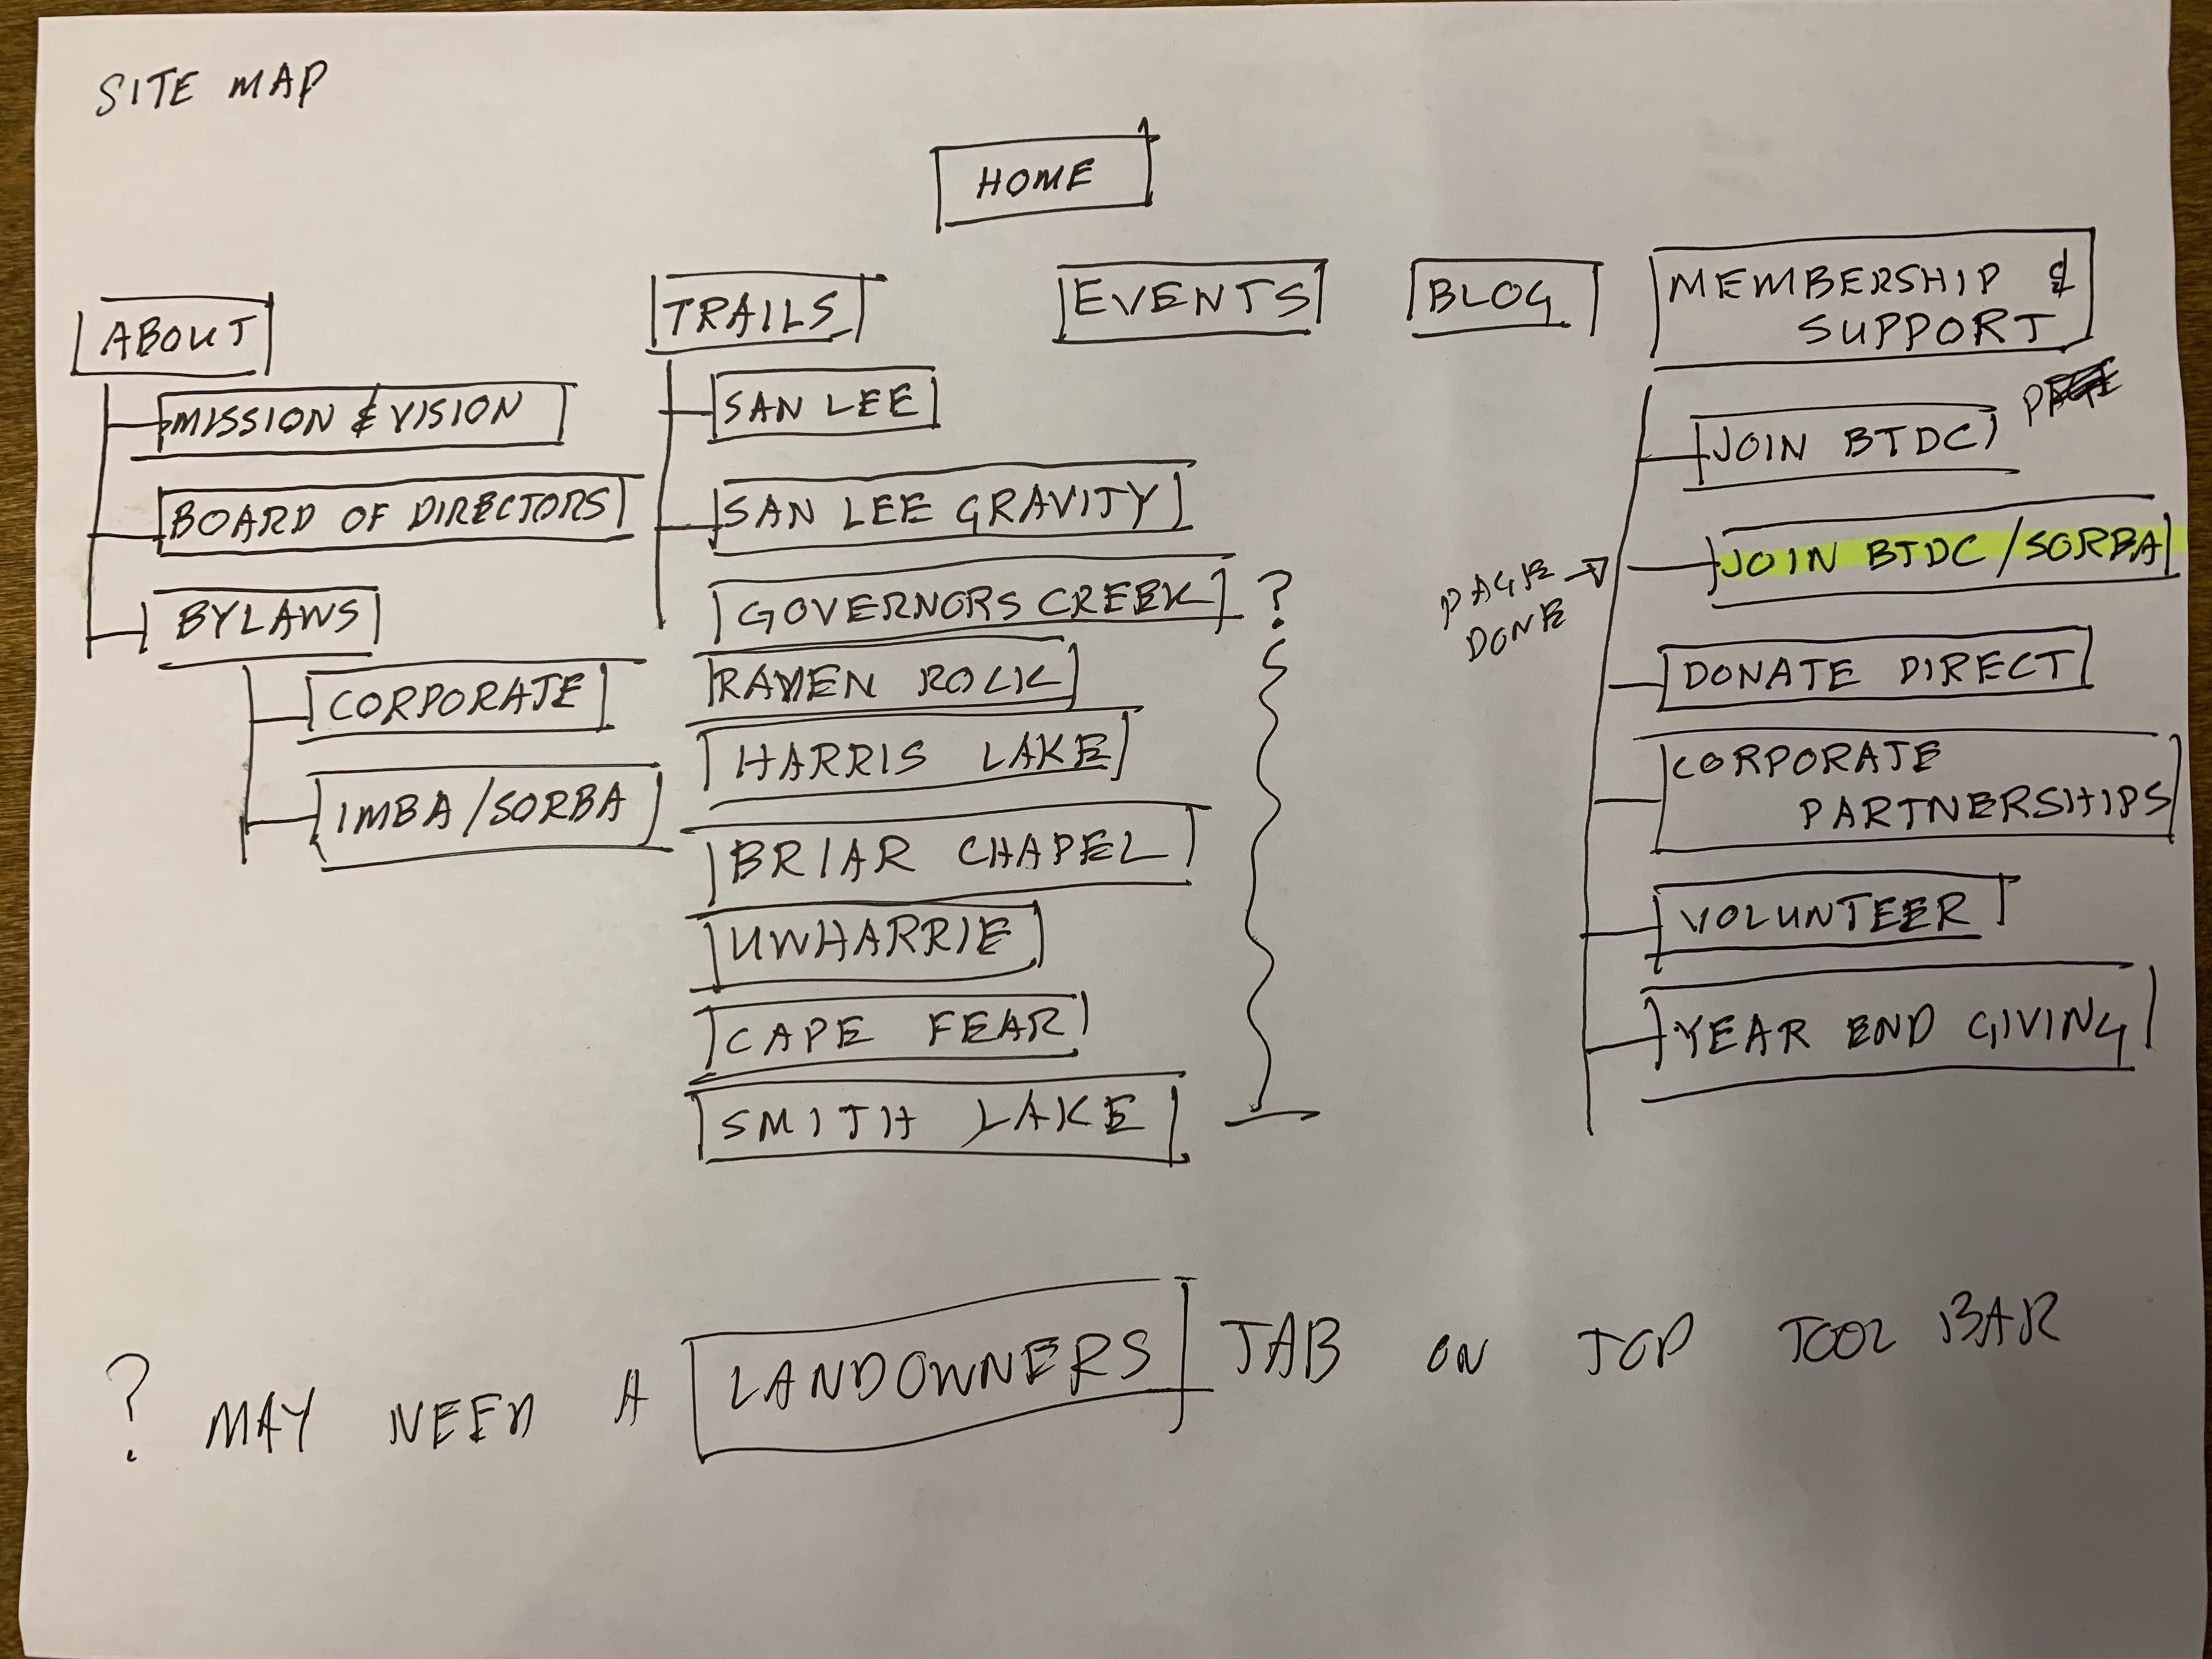 SITE MAP
HOME
ABOUT
MISSION & VISION
BOARD OF DIRECTORS
BYLAWS
CORPORATE
IMBA/SORBA
TRAILS
SAN LEE
SAN LEE GRAVITY
GOVERNORS CREEK ?
RAVEN ROCK
HARRIS LAKE
BRIAR CHAPEL
UWHARRIE
CAPE FEAR
SMITH LAKE
EVENTS
BLOG
MEMBERSHIP &
SUPPORT
JOIN BTDC
PAGE
DONE
JOIN BTDC/SORBA
DONATE DIRECT
CORPORATE
PARTNERSHIPS
VOLUNTEER
YEAR END GIVING
? MAY NEED A LANDOWNERS TAB ON TOP TOOL BAR